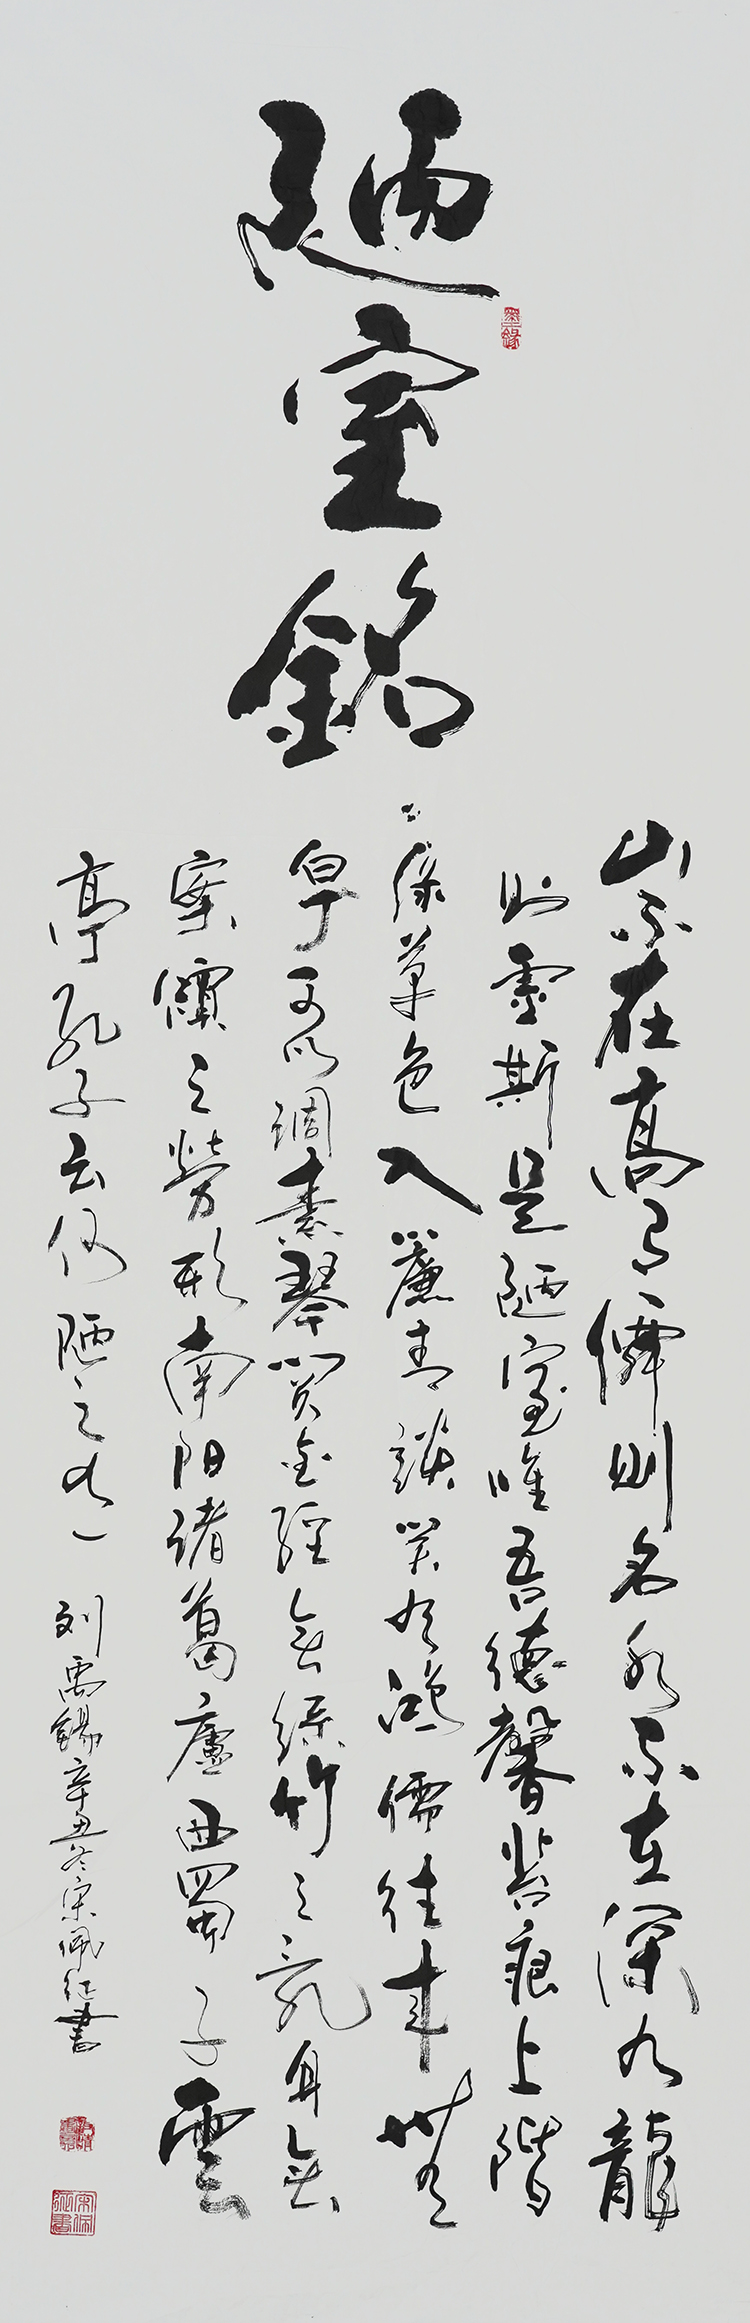 陋室銘
山不在高有僊則名水不在深有龍
則靈斯是陋室唯吾德馨苔痕上階
綠草色入簾青談笑有鴻儒往来無
白丁可以調素琴閱金經無絲竹之亂耳無
案牘之勞形南陽諸葛廬西蜀子雲
亭孔子云何陋之有
刘禹錫辛丑冬宋佩征書
宋佩征書